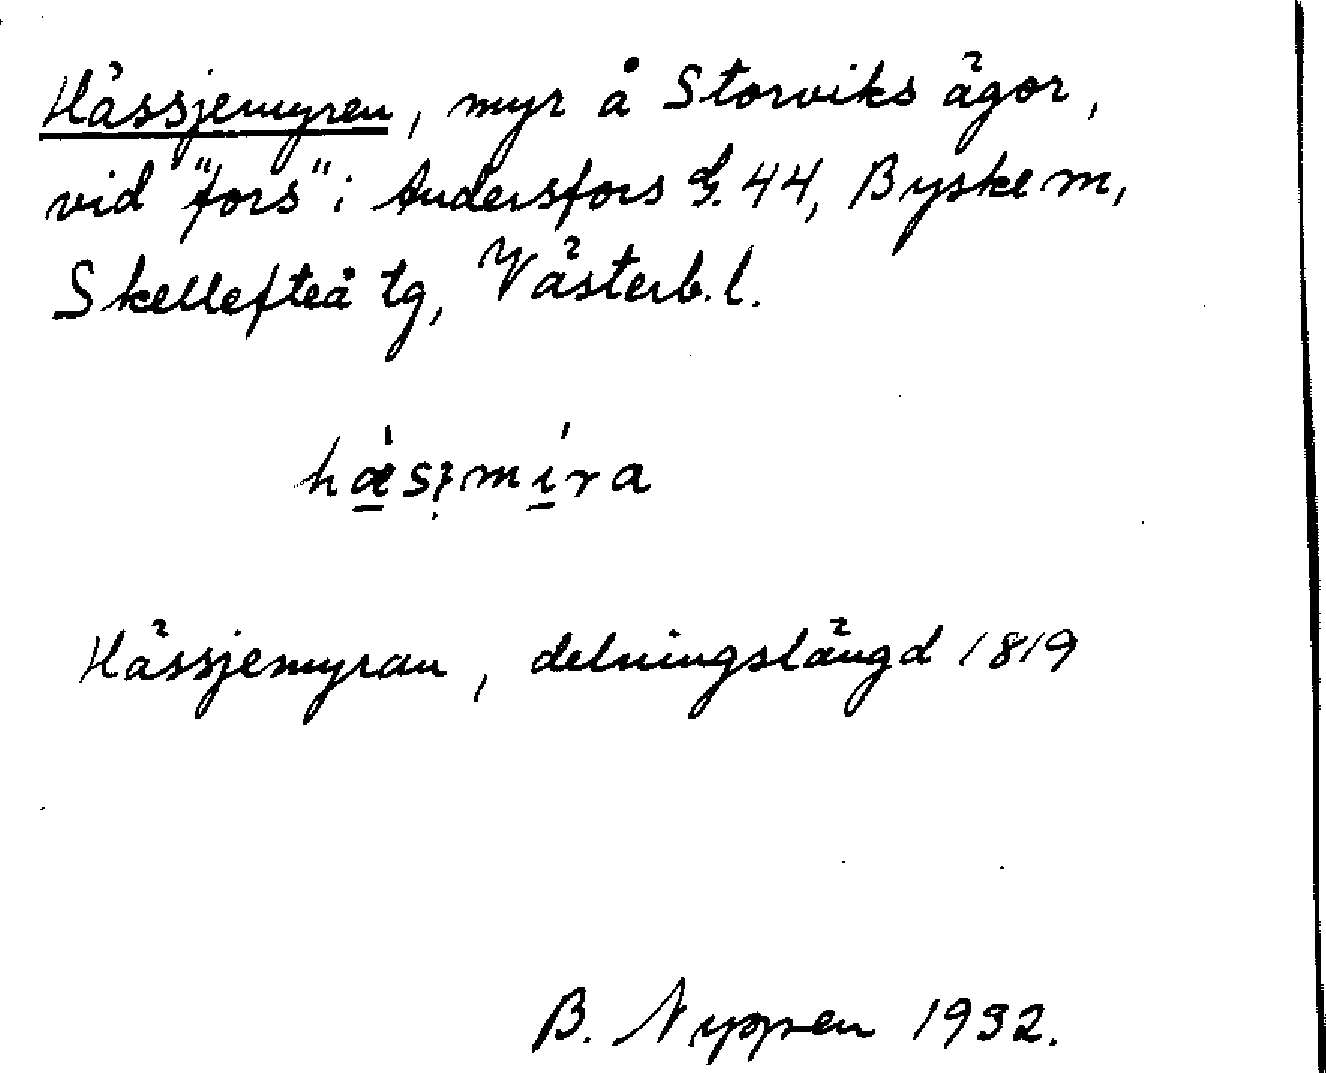 Hässjemyren, myr å Storviks ägor,
vid "fors" i Andersfors G. 44, Byske m,
Skellefteå tg, Västerb. l.
Hässjemyran, delningslängd 1819
B. Nyppen 1932.